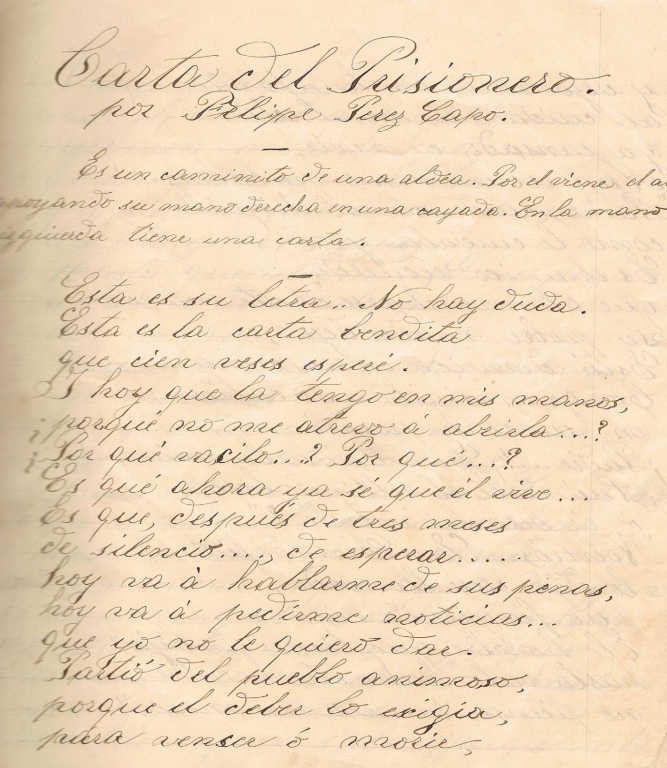 Carta del Prisionero.
por Felipe Perez Capo.
Es un caminito de una aldea. Por el viene el
apoyando su mano derecha en una cayada. En la mano
izquierda tiene una carta.
Esta es su letra.. No hay duda.
Esta es la carta bendita
que cien veses esperé.
I hoy que la tengo en mis manos,
¿porqué no me atrevo á abrirla...?
¿Por qué vacilo...? Por qué...?
Es qué ahora ya sé que él vive...
Es que, después de tres meses
de silencio...., de esperar....
hoy va á hablarme de sus penas,
hoy va á pedirme noticias...
que yo no le quiero dar.
Partió del pueblo animoso,
porque el deber lo exigia,
para venser ó morir,